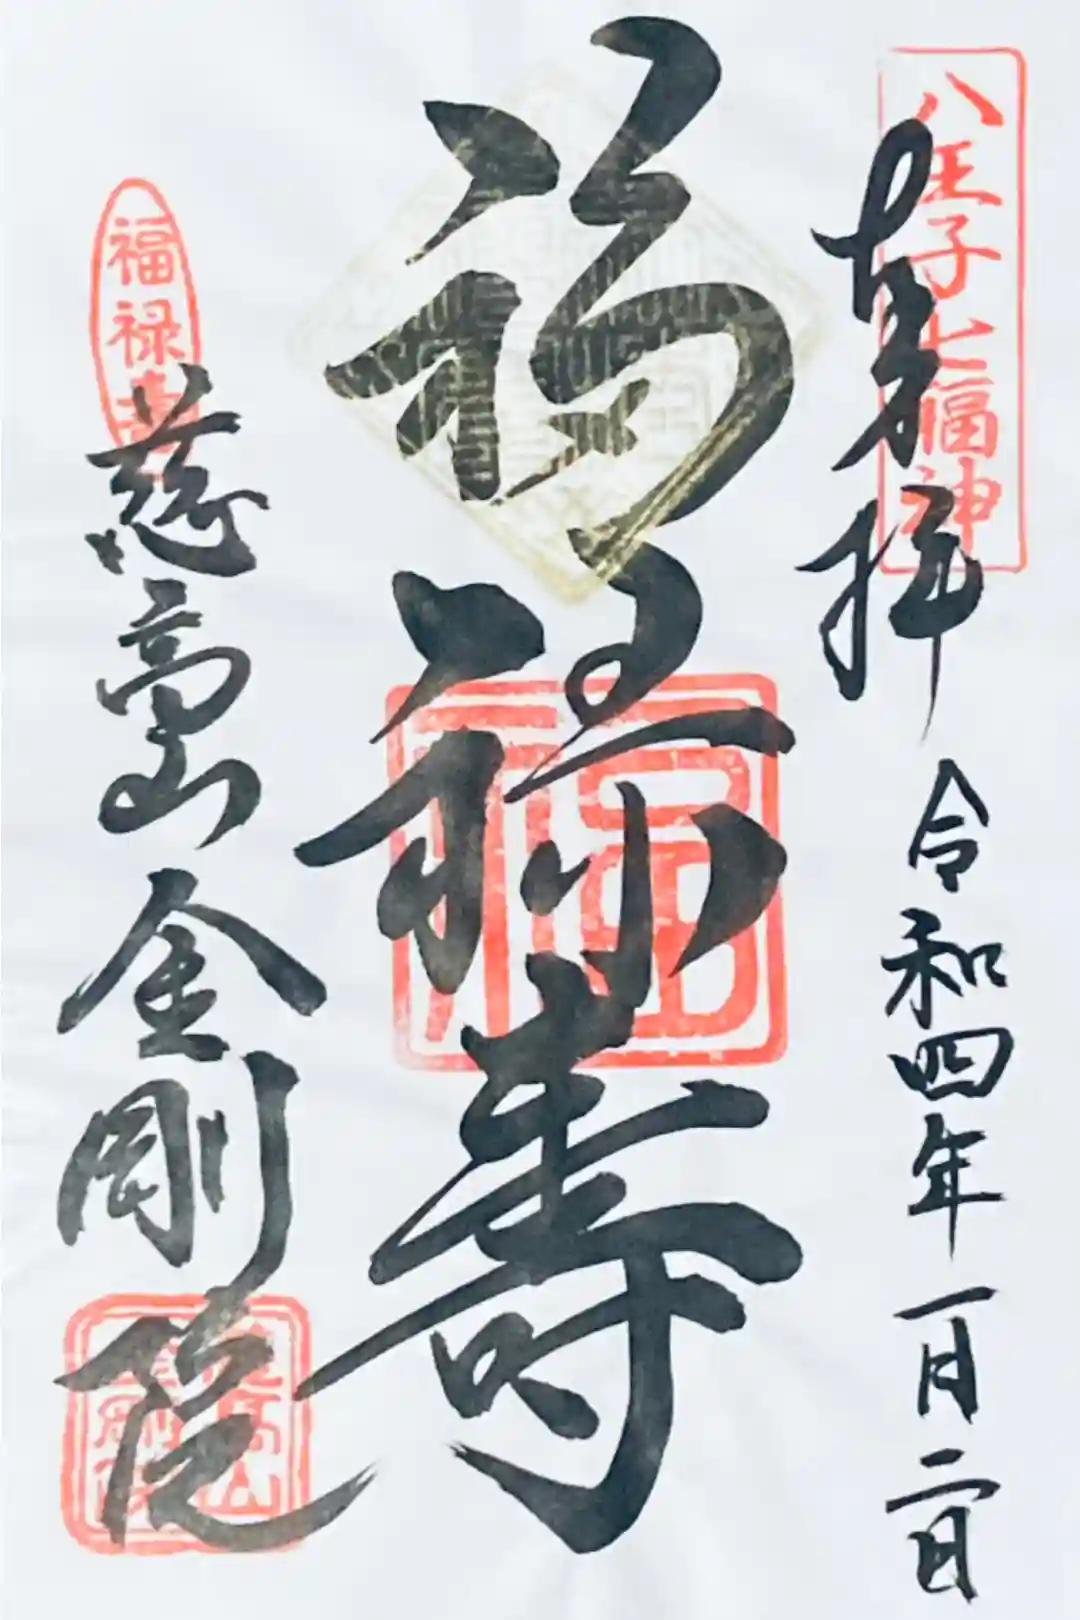 八王子七福神
奉拝
令和四年一月二日
福禄寿
福
福禄寿
慈高山金剛院